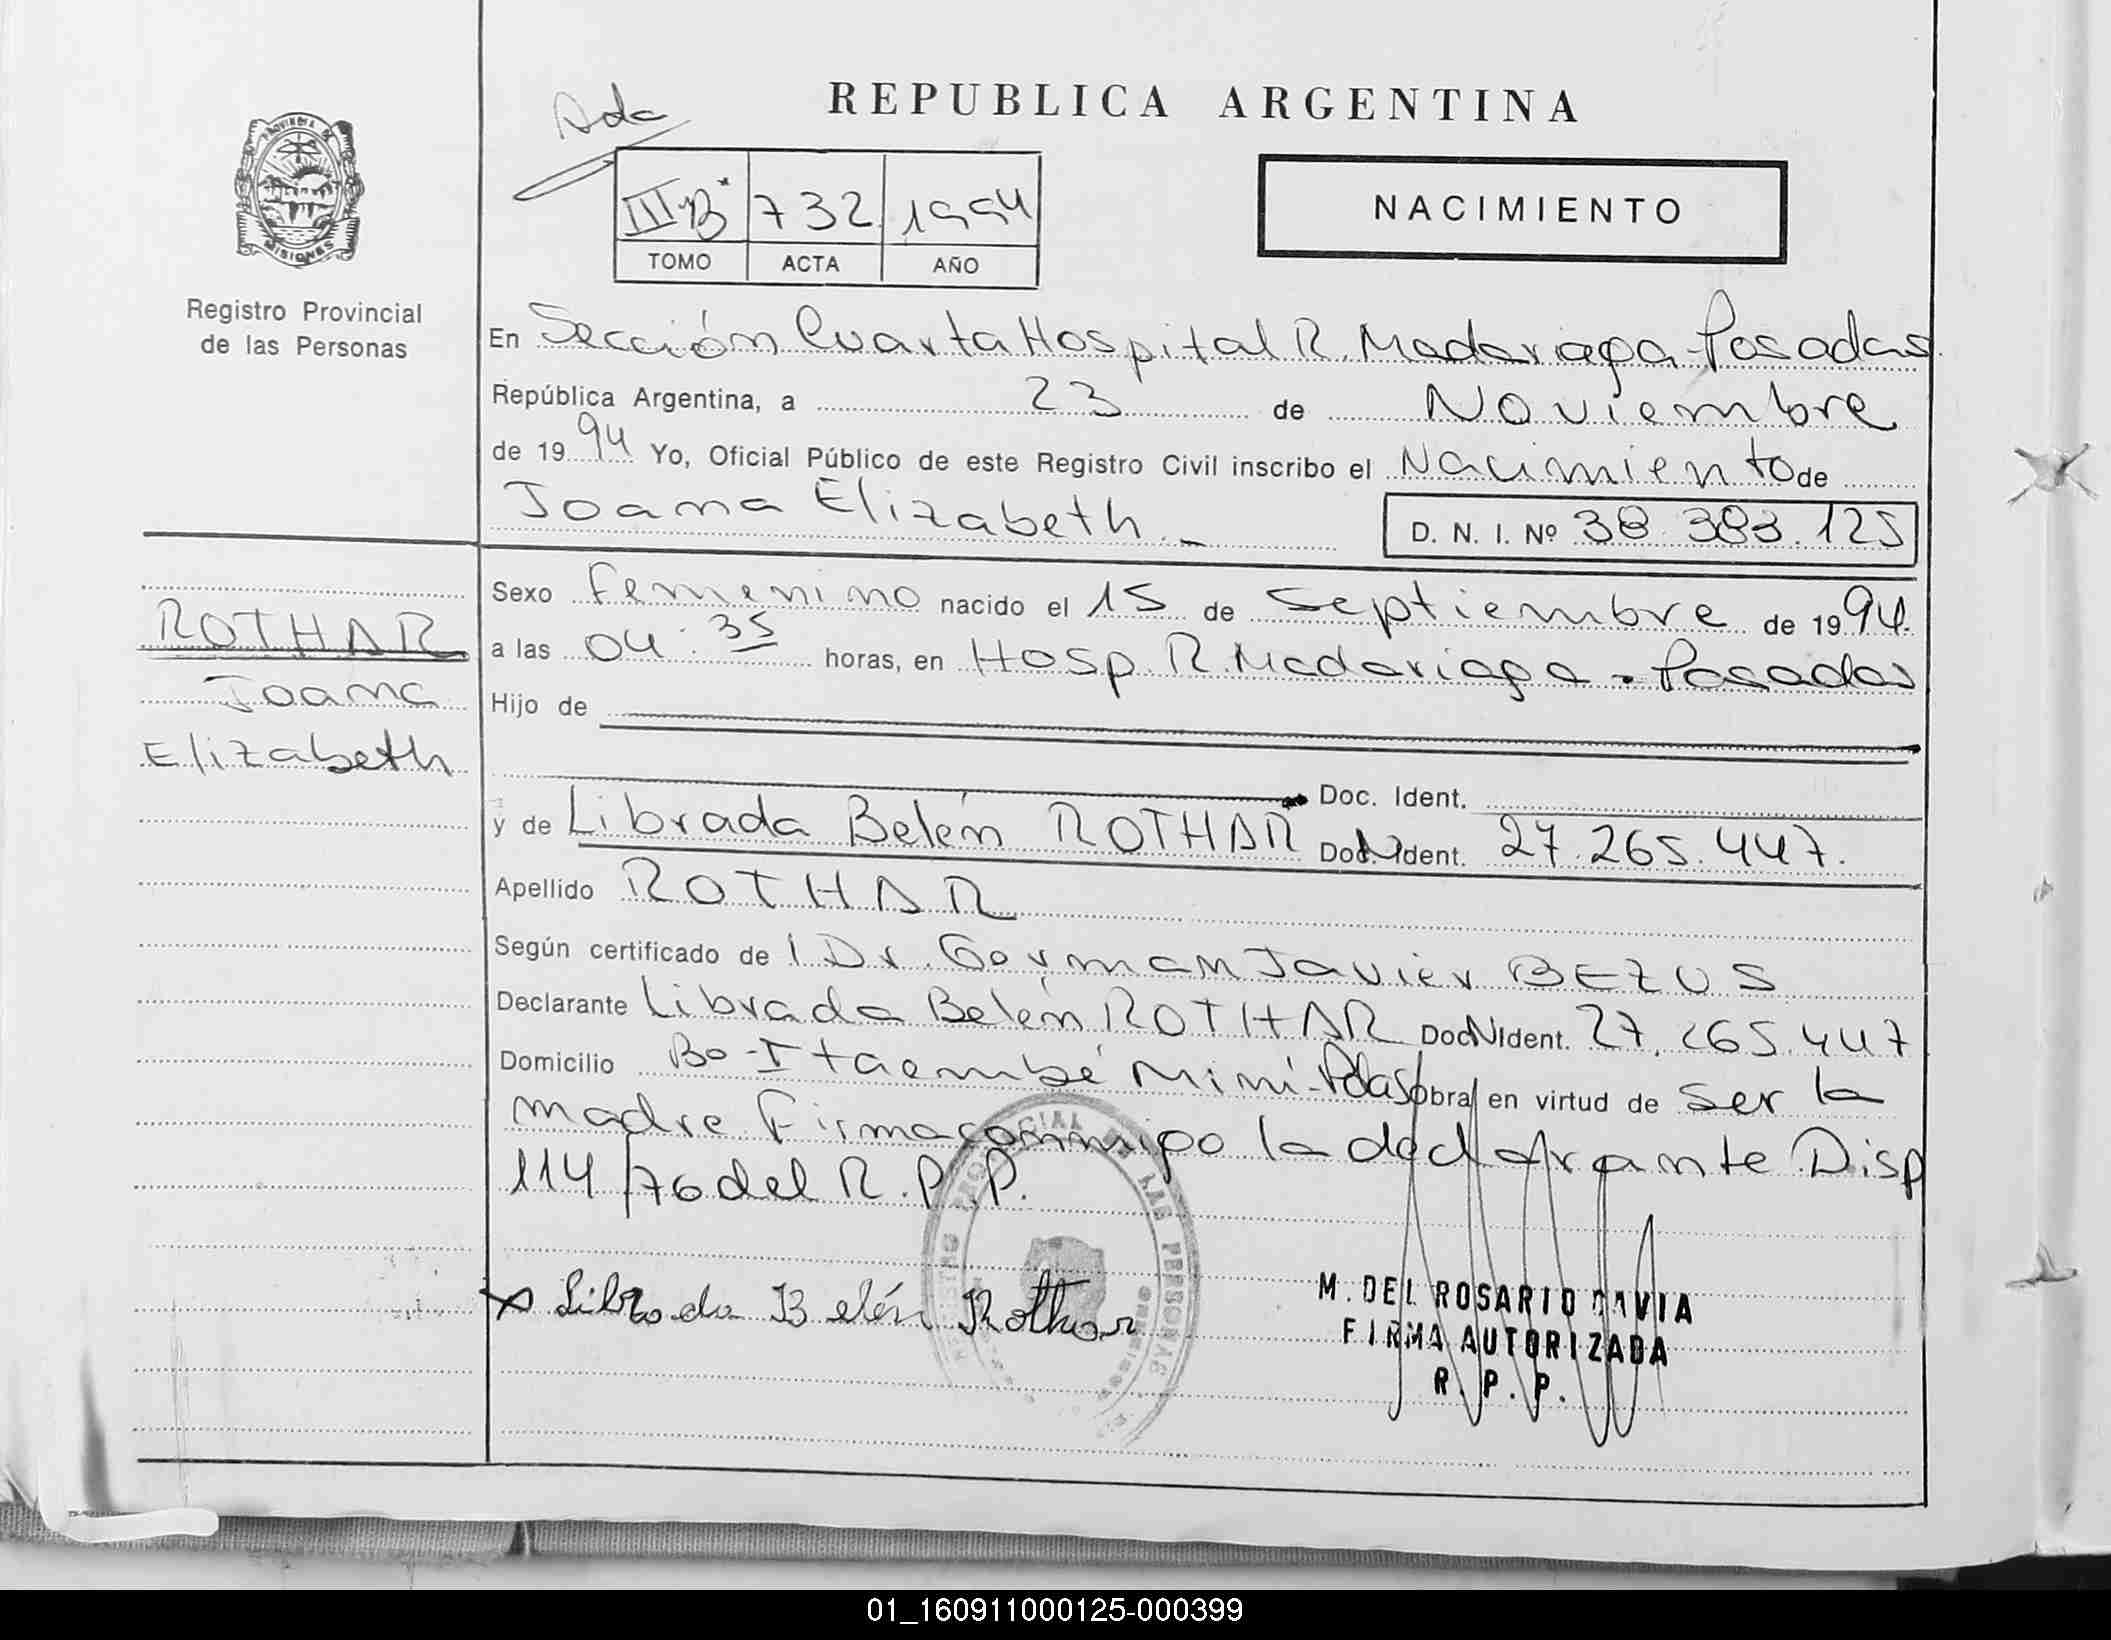 Ada
REPUBLICA ARGENTINA
NACIMIENTO
III "B" 732 1994
TOMO ACTA AÑO
PROVINCIA DE
MISIONES
Registro Provincial
de las Personas
En Sección Cuarta Hospital R. Madariaga - Posadas
República Argentina, a 23 de Noviembre
de 1994 Yo, Oficial Público de este Registro Civil inscribo el Nacimiento de
Joana Elizabeth.-
D. N. I. Nº 38.383.125
ROTHAR
Joana
Elizabeth
Sexo Femenino nacido el 15 de Septiembre de 1994.
a las 04:35 horas, en Hosp. R. Madariaga - Posadas
Hijo de
Doc. Ident.
y de Librada Belén ROTHAR Doc. Ident. 27.265.447.
Apellido ROTHAR
Según certificado de l Dr. German Javier BEZUS
Declarante Librada Belén ROTHAR Doc. Ident. 27.265.447
Domicilio Bo- Itaembé Miní- Pdas Obra en virtud de ser la
madre Firma conmigo la declarante Disp
114/76 del R.P.P.
REGISTRO PROVINCIAL DE LAS PERSONAS
Librada Belén Rothar
M. DEL ROSARIO DAVIA
FIRMA AUTORIZADA
R. P. P.
01_160911000125-000399